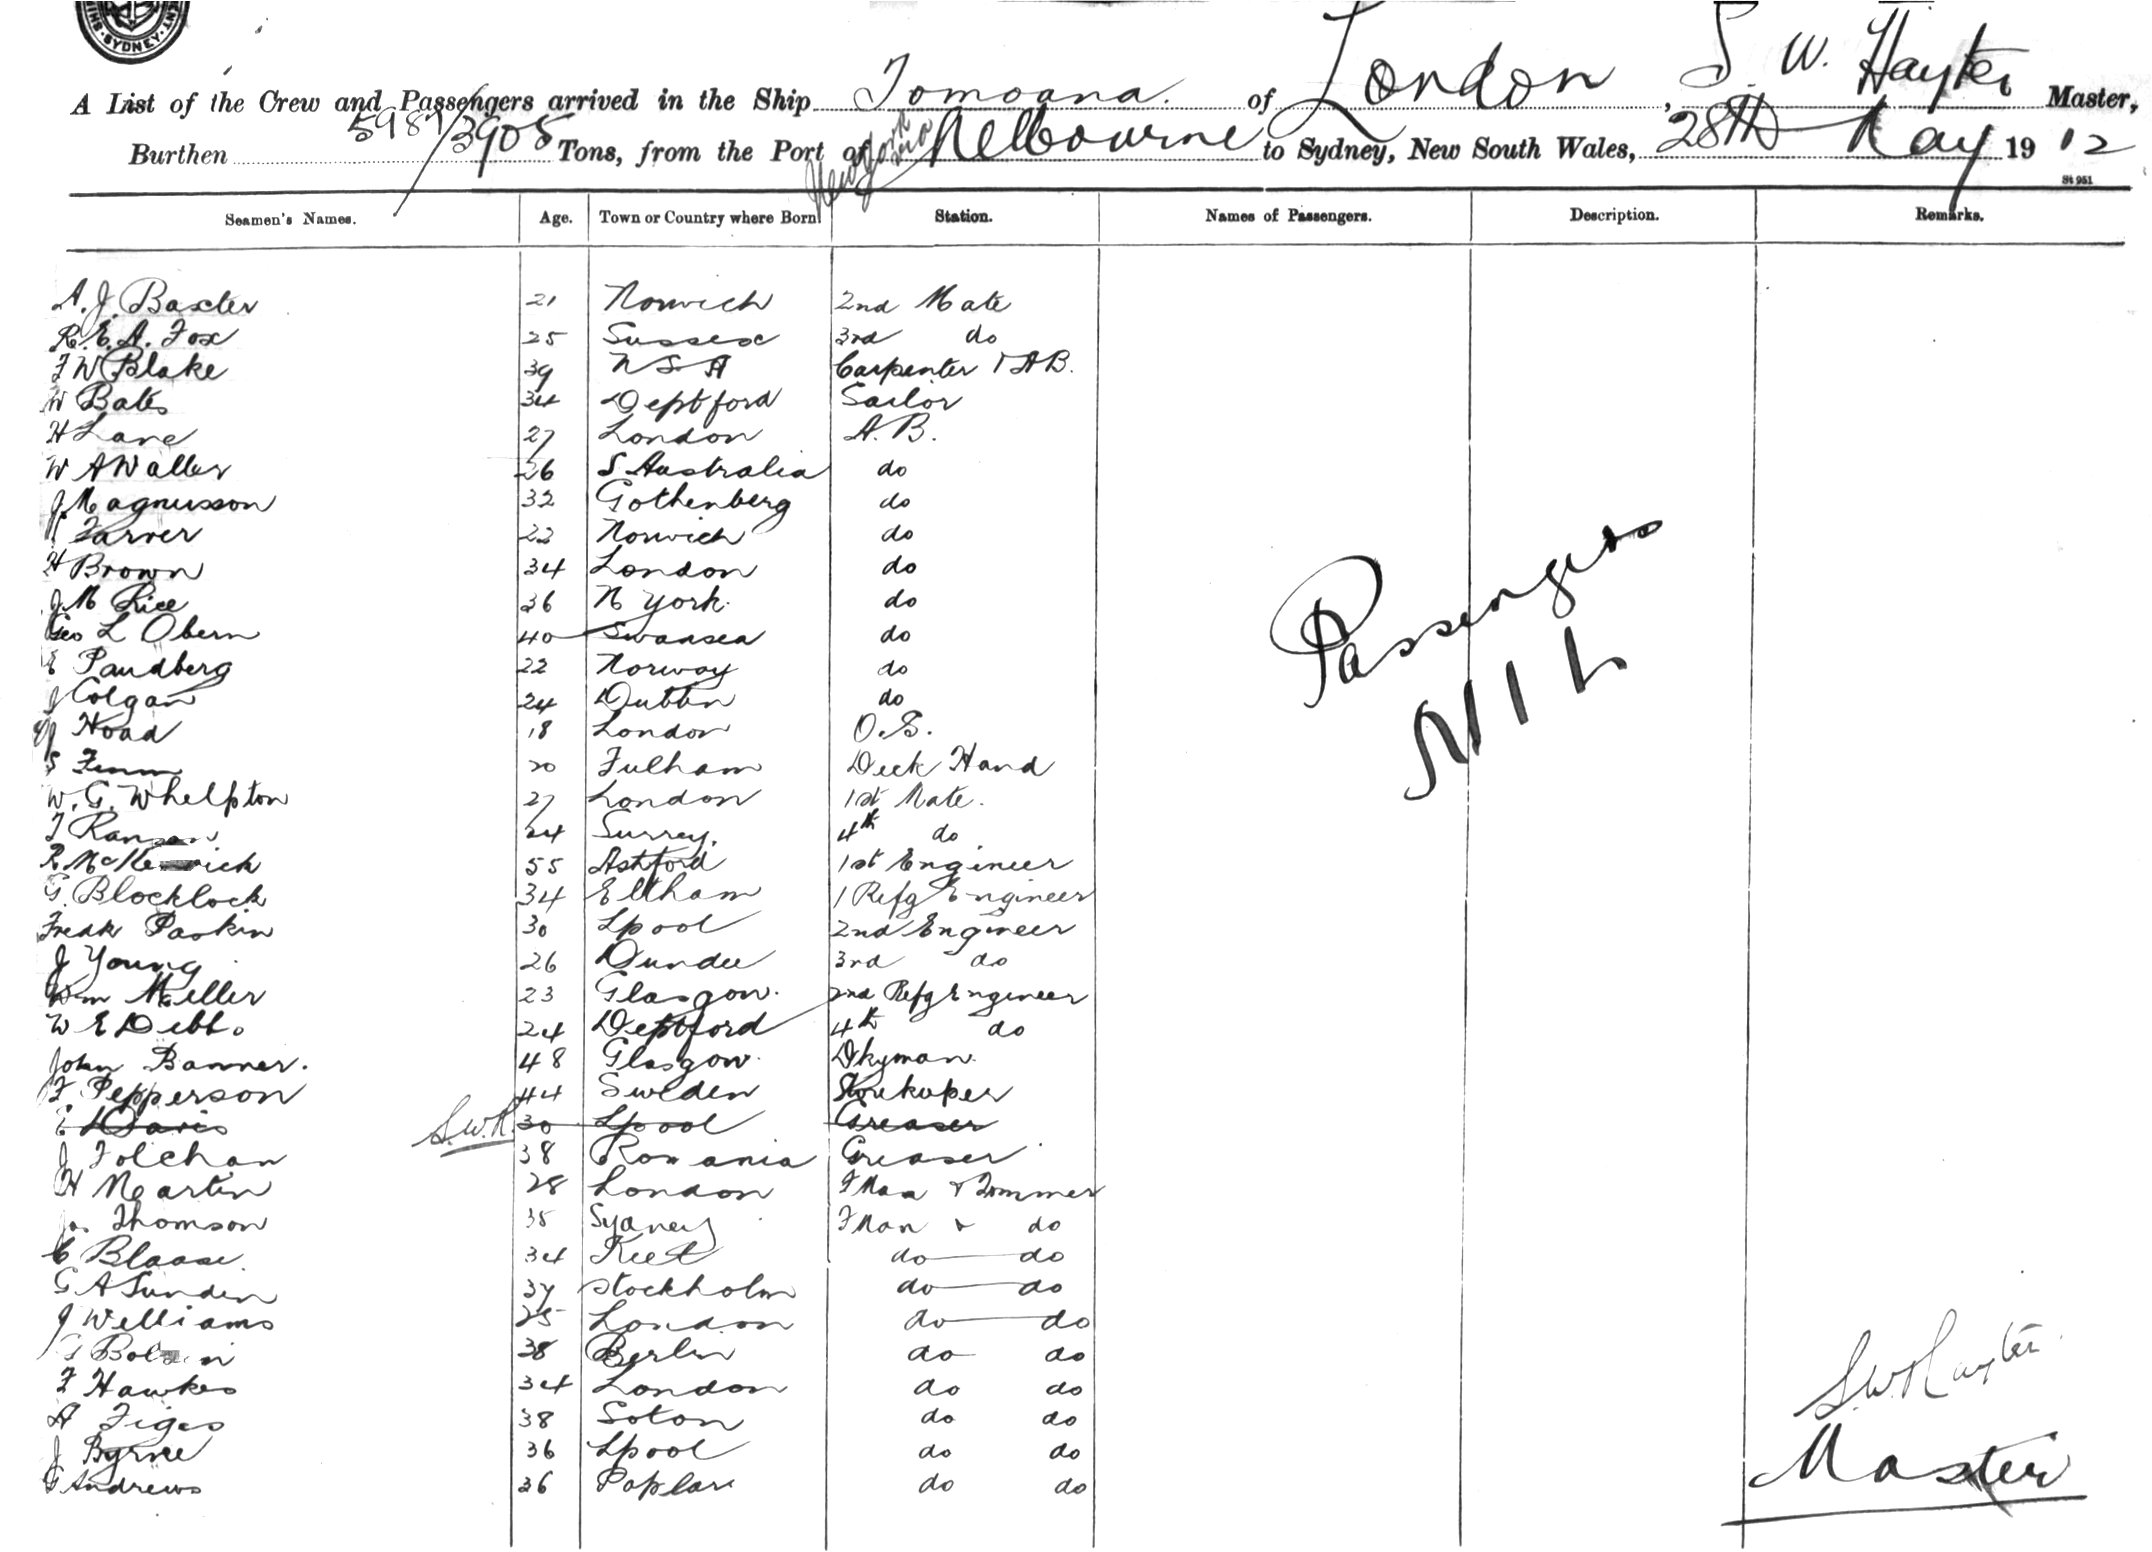 SYDNEY.
A List of the Crew and Passengers arrived in the Ship Tomoana. of London, S. W. Hayter Master,
Burthen 5987/3905 Tons, from the Port of New York via Melbourne to Sydney, New South Wales, 28th May 1912
St 951
Seamen's Names. Age. Town or Country where Born. Station. Names of Passengers. Description. Remarks.
A. J. Baxter 21 Norwich 2nd Mate
R. E. A. Fox 25 Sussex 3rd do
F W Blake 39 N S A Carpenter & AB.
W Bates 34 Deptford Sailor
H Lane 27 London A. B.
W A Waller 26 S Australia do
J. Magnusson 32 Gothenberg do
Farner 22 Norwich do
H Brown 34 London do
J. M Rice 36 N York. do
Geo L Obern 40 Swansea do
E Pandberg 22 Norway do
J Colgan 24 Dublin do
Hoad 18 London O. S.
S Fenn 20 Fulham Deck Hand
W. G. Whelpton 27 London 1st Mate.
T Ranson 24 Surrey. 4th do
R. Mc 55 Ashford 1st Engineer
G. Blocklock 34 Eltham 1 Refg Engineer
Fredk Paskin 30 Lpool 2nd Engineer
J Young 26 Dundee 3rd do
Wm Meller 23 Glasgow. 2nd Refg Engineer
W E Dibb 24 Deptford 4th do
John Banner. 48 Glasgow. Dkyman.
F. Pepperson 44 Sweden Storekeeper
E Davis S.W.H. 30 Lpool Greaser
J Folchan 38 Romania Greaser
H Martin 28 London FMan & Trimmer
Jas Thomson 35 Sydney FMan & do
C Blaase. 34 Keet do do
G A Sunden 37 Stockholm do do
J Williams 25 London do do
G 38 Berlin do do
F Hawkes 34 London do do
A Figes 38 Soton do do
J Byrne 36 Lpool do do
G Andrews 36 Poplar do do
Passengers
NIL
S.W. Hayter
Master